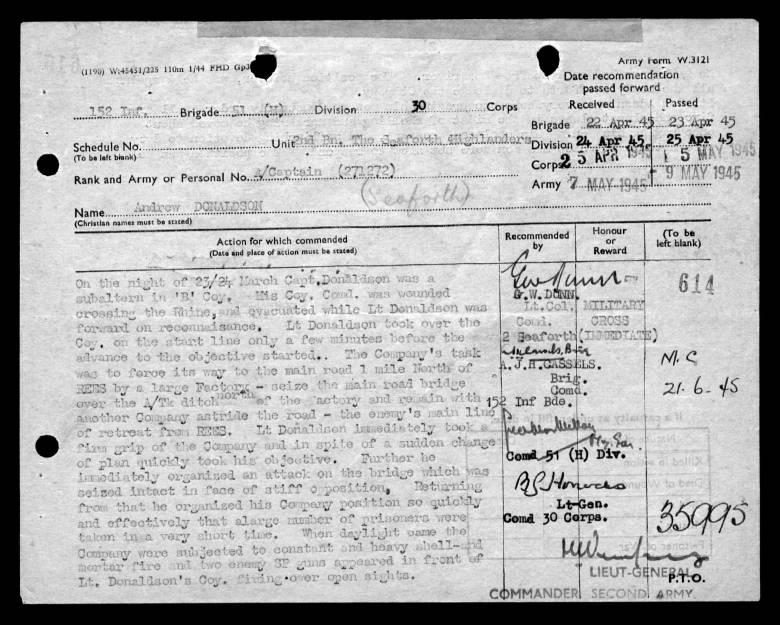 (1190) W:45451/225 110m 1/44 FHD
Army Form W.3121
Date recommendation
passed forward
Received Passed
152 Inf. Brigade 51 (H) Division 30 Corps
Brigade 22 Apr 45 23 Apr 45
Schedule No.
(To be left blank)
Unit 2nd Bn. The Seaforth Highlanders
Division 24 Apr 45 25 Apr 45
Corps 25 APR 1945 5 MAY 1945
Rank and Army or Personal No. A/Captain (271272)
Army 7 MAY 1945 9 MAY 1945
(Seaforth)
Name Andrew DONALDSON
(Christian names must be stated)
Action for which commended
(Date and place of action must be stated)
Recommended
by
Honour
or
Reward
(To be
left blank)
On the night of 23/24 March Capt.Donaldson was a
subaltern in 'B' Coy. His Coy. Comd. was wounded
crossing the Rhine, and evacuated while Lt Donaldson was
forward on reconnaisance. Lt Donaldson took over the
Coy. on the start line only a few minutes before the
advance to the objective started.. The Company's task
was to force its way to the main road 1 mile North of
REES by a large Factory - seize the main road bridge
over the A/Tk ditch north of the factory and remain with
another Company astride the road - the enemy's main line
of retreat from REES. Lt Donaldson immediately took a
firm grip of the Company and in spite of a sudden change
of plan quickly took his objective. Further he
immediately organized an attack on the bridge which was
seized intact in face of stiff opposition. Returning
from that he organized his Company position so quickly
and effectively that alarge number of prisoners were
taken in a very short time. When daylight came the
Company were subjected to constant and heavy shell-and
mortar fire and two enemy SP guns appeared in front of
Lt. Donaldson's Coy. firing over open sights.
G.W.DUNN.
Lt.Col.
Comd.
2 Seaforth
MILITARY
CROSS
(IMMEDIATE)
614
A.J.H.CASSELS.
Brig.
Comd.
152 Inf Bde.
M.C
21.6.45
Comd 51 (H) Div.
Lt-Gen.
Comd 30 Corps.
35995
LIEUT-GENERAL
P.T.O.
COMMANDER SECOND ARMY